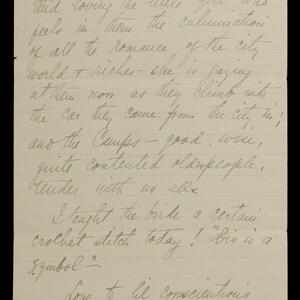 and loving the little girl who
feels in them the culmination
of all the Romance of the city
world & riches – she is gazing
at them now as they climb into
the car they came from the city in!
and the Camps – good, wise,
quite contented older people,
tender with us all x
I taught the bride a certain
crochet stitch today! "Dis is a
symbol" –
Love to lil conscientious